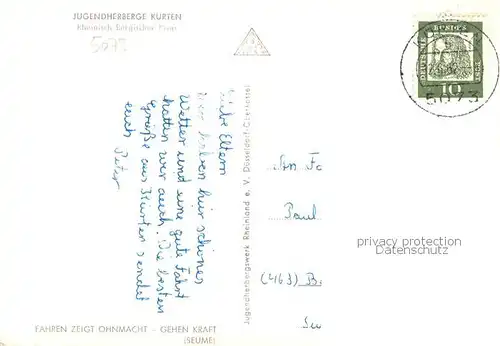 JUGENDHERBERGE KÜRTEN
Rheinisch Bergischer Kreis
5073
DEUTSCHE BUNDESPOST
10
5073
Liebe Eltern
Wir haben hier schönes
Wetter und eine gute Fahrt
hatten wir auch. Die besten
Grüße aus Kürten sendet
euch Peter
Jugendherbergswerk Rheinland e. V. Düsseldorf-Oberkassel
An Fa
Paul
privacy protection
Datenschutz
(463) B
FAHREN ZEIGT OHNMACHT – GEHEN KRAFT
(SEUME)